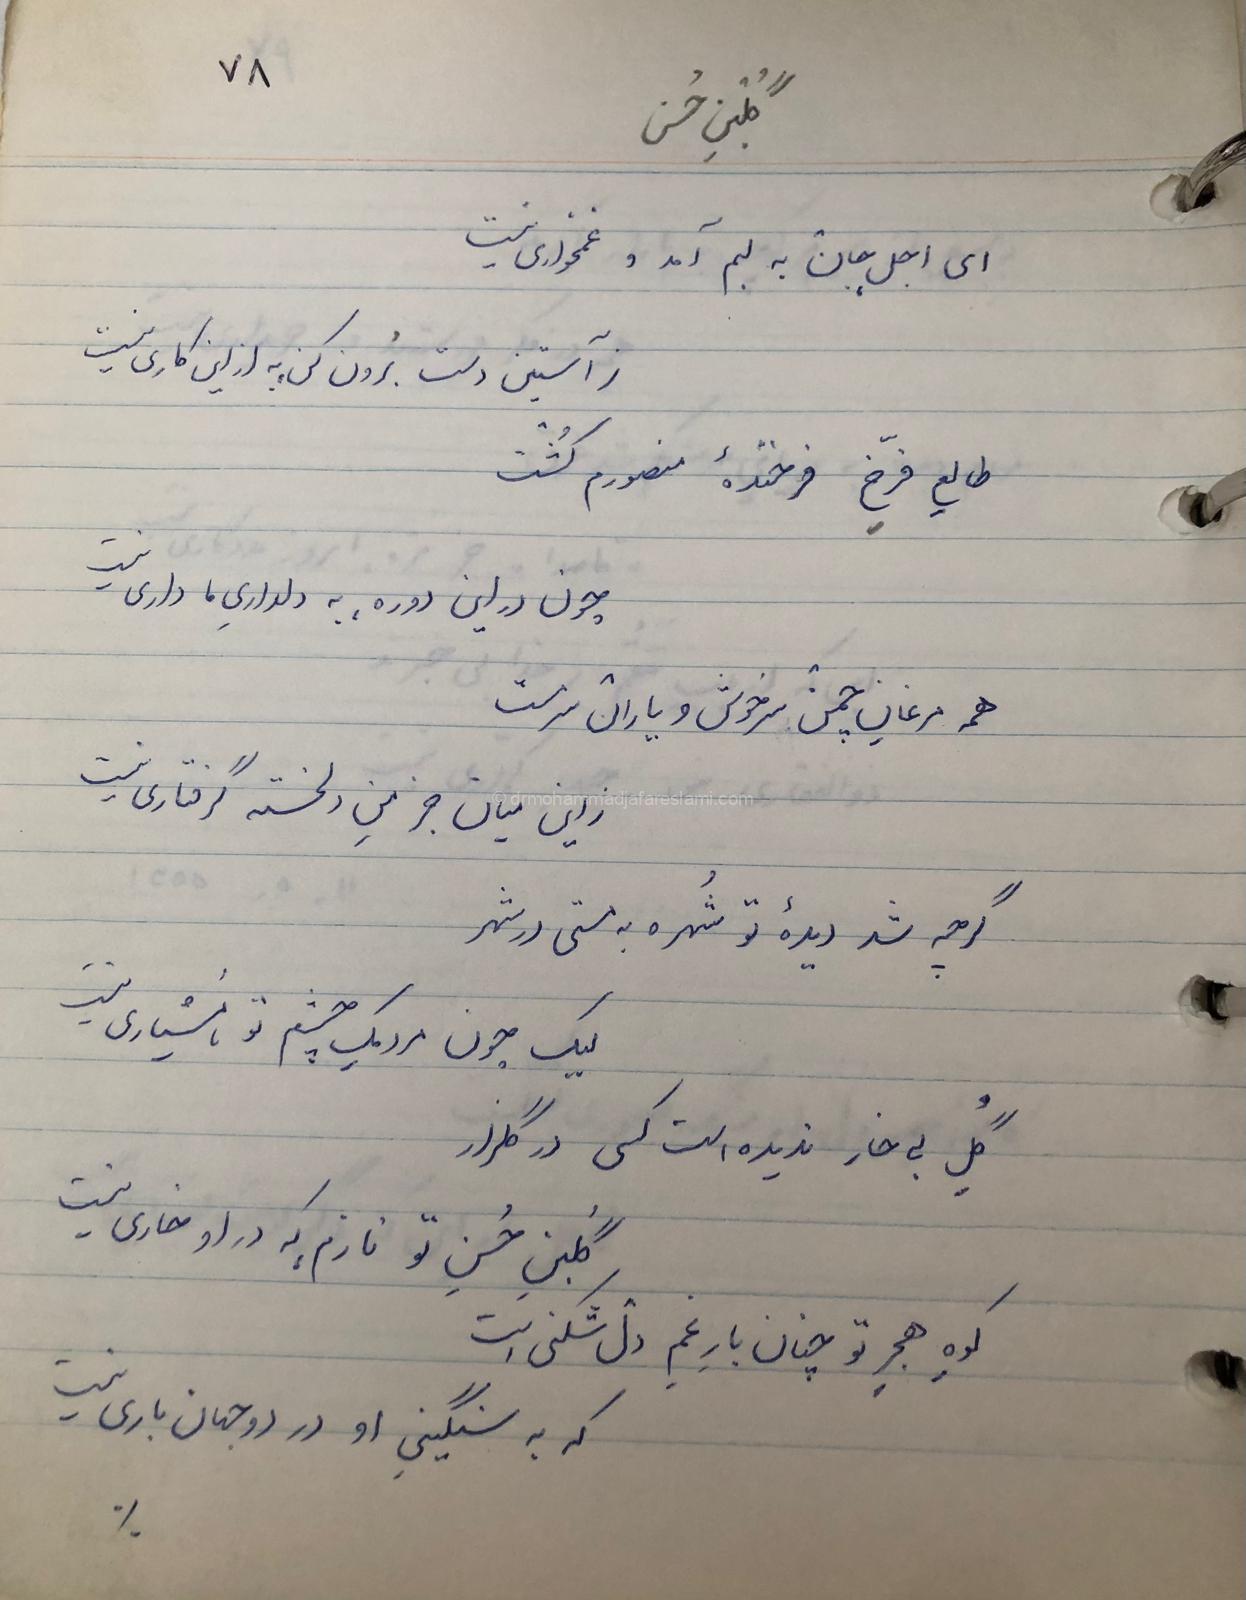 ۷۸
گلبنِ حُسن
ای اجل، جان به لبم آمد و غمخواری نیست
ز آستین دست بُرون کن، به از این کاری نیست
طالعِ فرّخِ فرخندهٔ منصورم کُشت
چون در این دوره، به دلداریِ ما داری نیست
همه مرغانِ چمن سرخوش و یاران سرمست
ز این میان جز منِ دلخسته گرفتاری نیست
© drmohammadjafareslami.com
گرچه شد دیدهٔ تو شُهره به مستی در شهر
لیک چون مردمکِ چشم تو هُشیاری نیست
گُلِ بی خار ندیده است کسی در گلزار
گُلبنِ حُسنِ تو نازم، که در او خاری نیست
کوهِ هجرِ تو چنان بارِ غمِ دل شکنی است
که به سنگینیِ او در دو جهان باری نیست